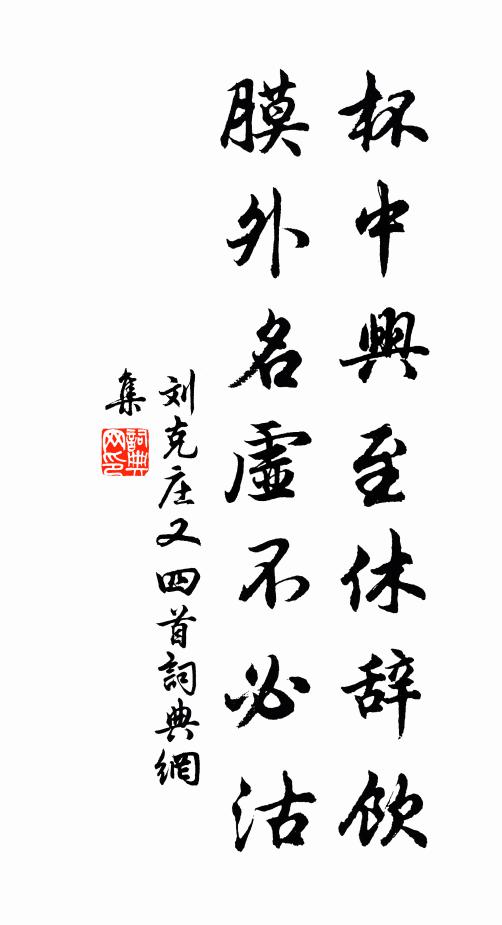 杯中興至休辞饮
膜外名虛不必沽
刘克庄又四首詞典網
集
詞典网印